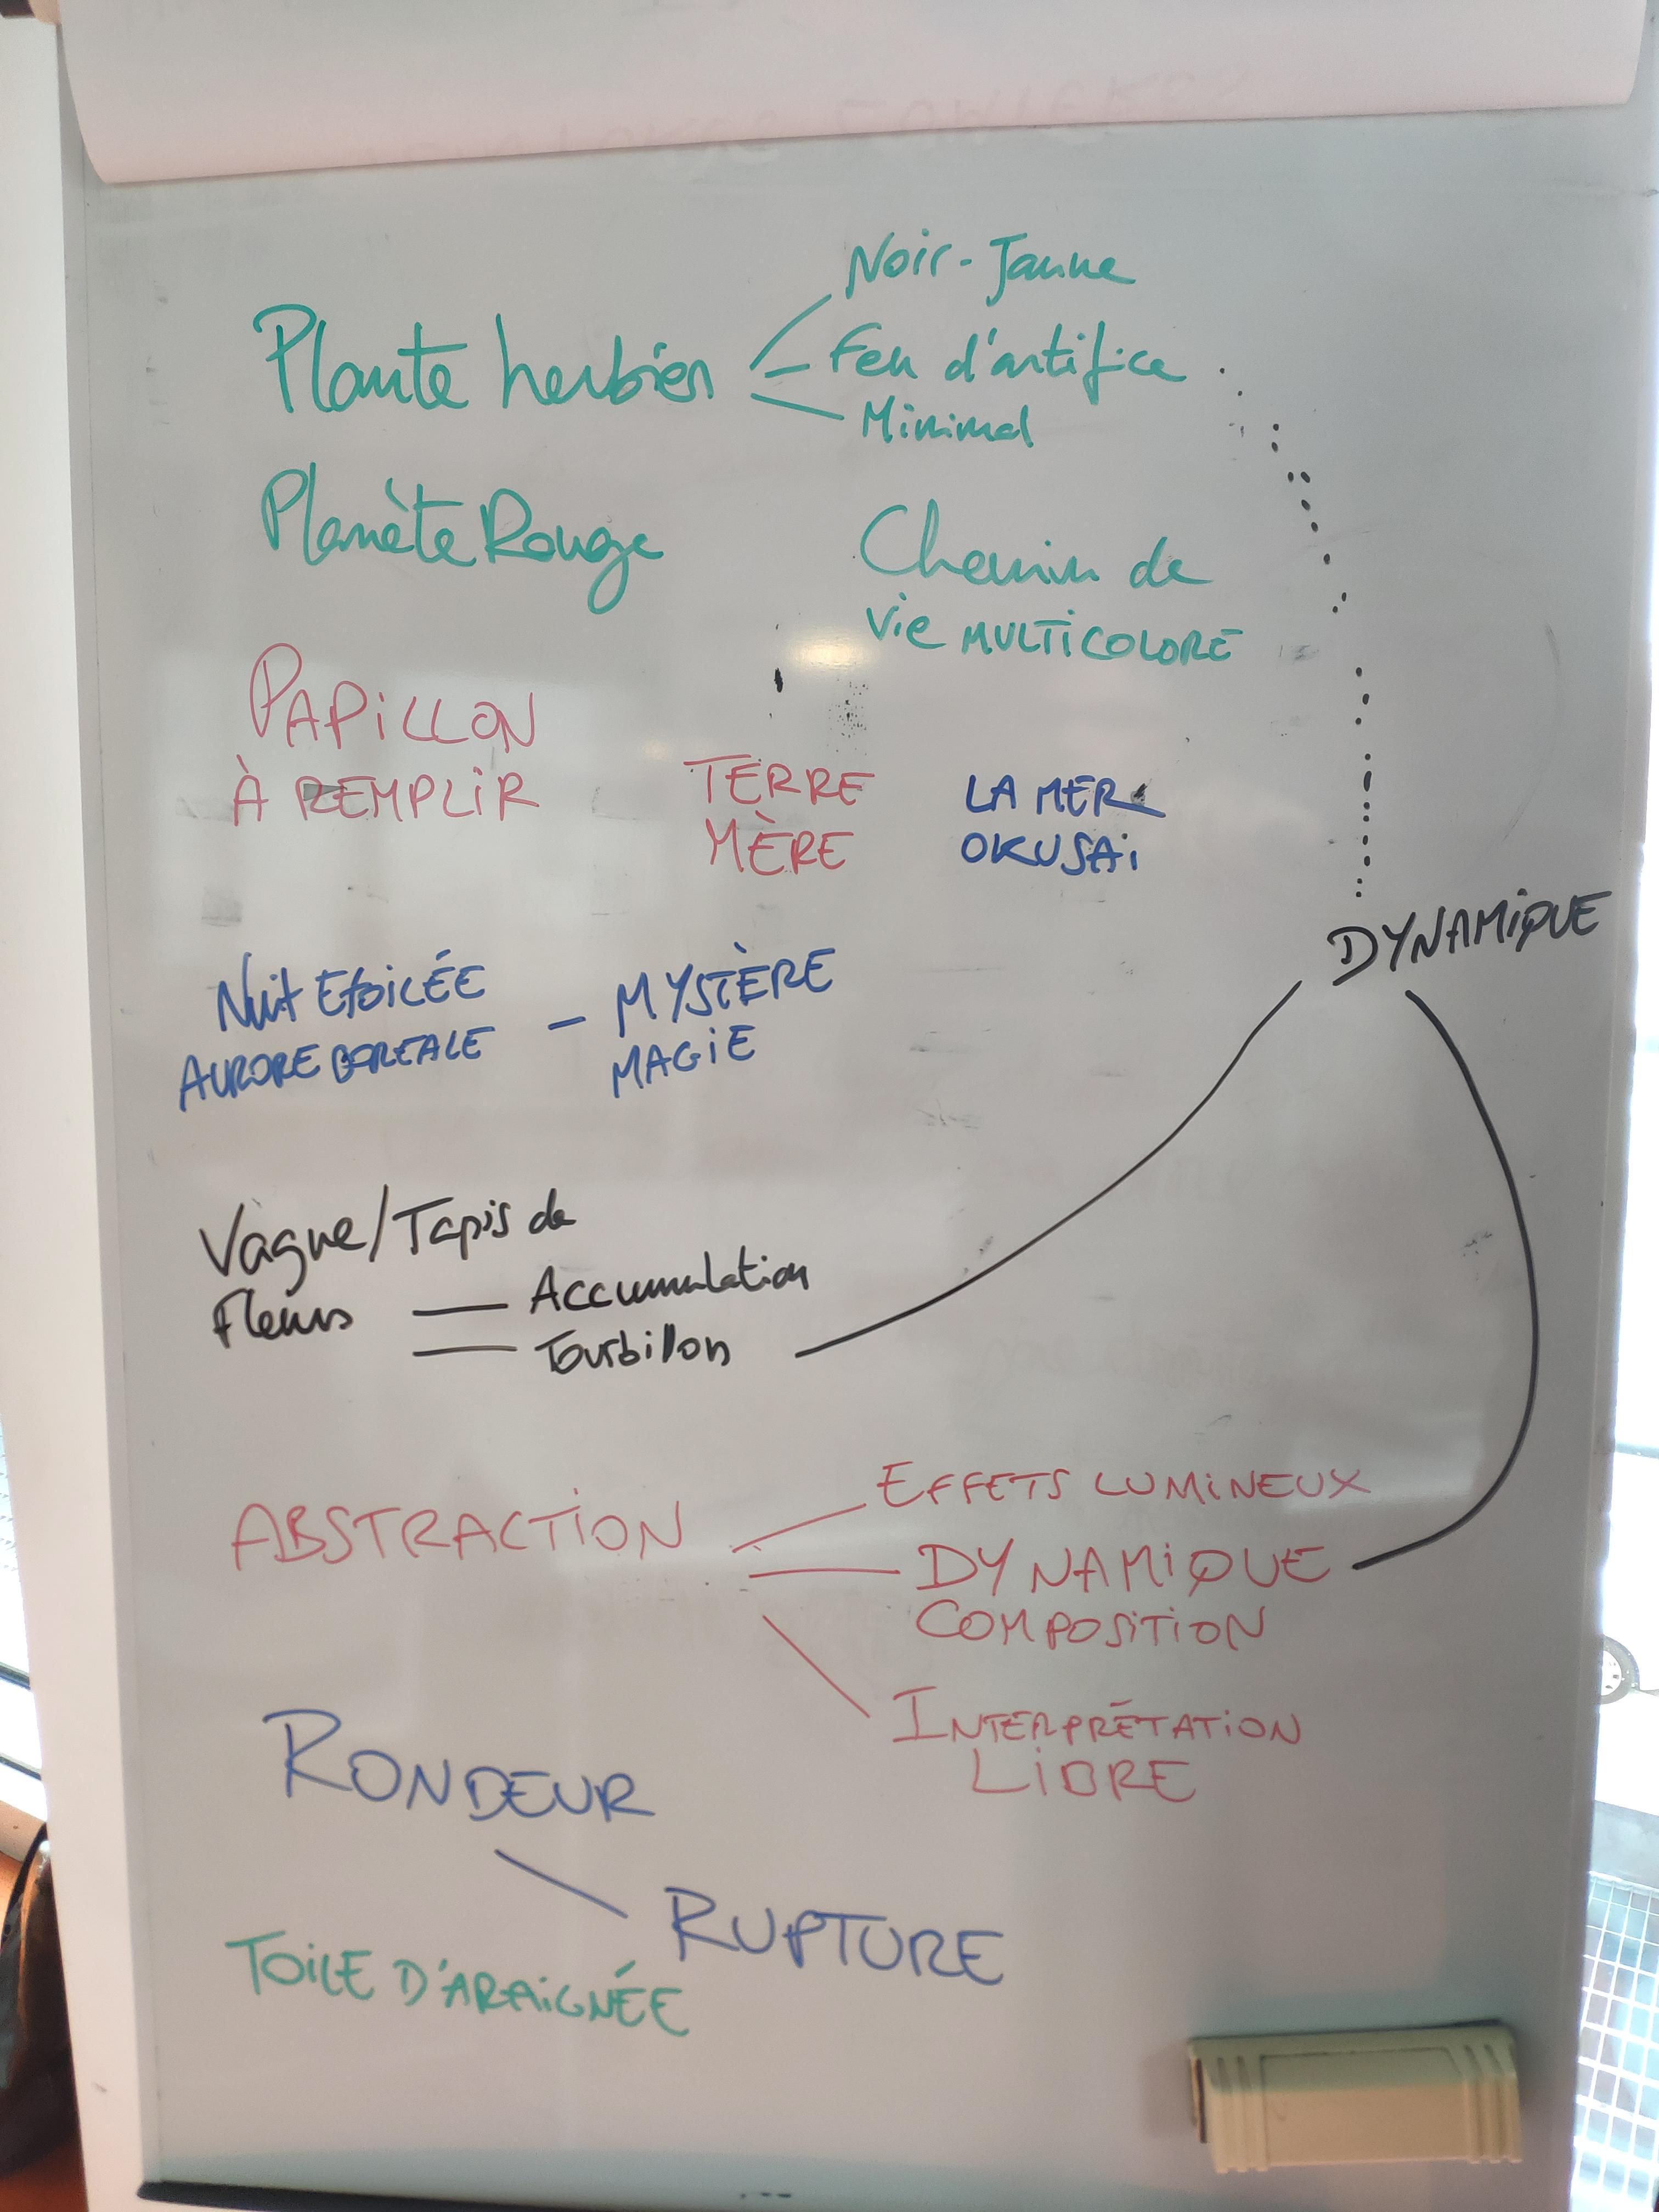 Noir-Jaune
Plante herbier
Feu d'artifice
Minimal
Planète Rouge
Chemin de
vie MULTICOLORE
PAPILLON
À REMPLIR
TERRE
MÈRE
LA MER
OKUSAI
DYNAMIQUE
NUIT ETOILÉE
AURORE BOREALE
- MYSTÈRE
MAGIE
Vague/Tapis de
Fleurs
Accumulation
Tourbillon
ABSTRACTION
EFFETS LUMINEUX
DYNAMIQUE
COMPOSITION
INTERPRÉTATION
LIBRE
RONDEUR
RUPTURE
TOILE D'ARAIGNÉE